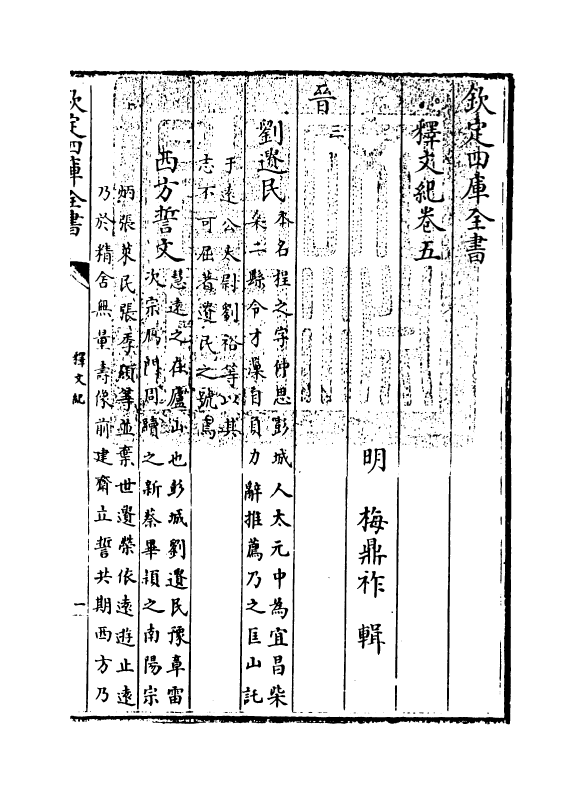 欽定四庫全書
釋文紀卷五
明 梅鼎祚 輯
晉三
劉遺民本名程之字仲思彭城人太元中為宜昌柴
桑二縣令才藻自負力辭推薦乃之匡山託
于遠公太尉劉裕等以其
志不可屈遺民之號焉
西方誓文慧遠之在廬山也彭城劉遺民豫章雷
次宗鴈門周續之新蔡畢穎之南陽宗
炳張萊民張季碩等並棄世遺榮依遠遊止遠
乃於精舍無量壽像前建齋立誓共期西方乃
欽定四庫全書
釋文紀
一